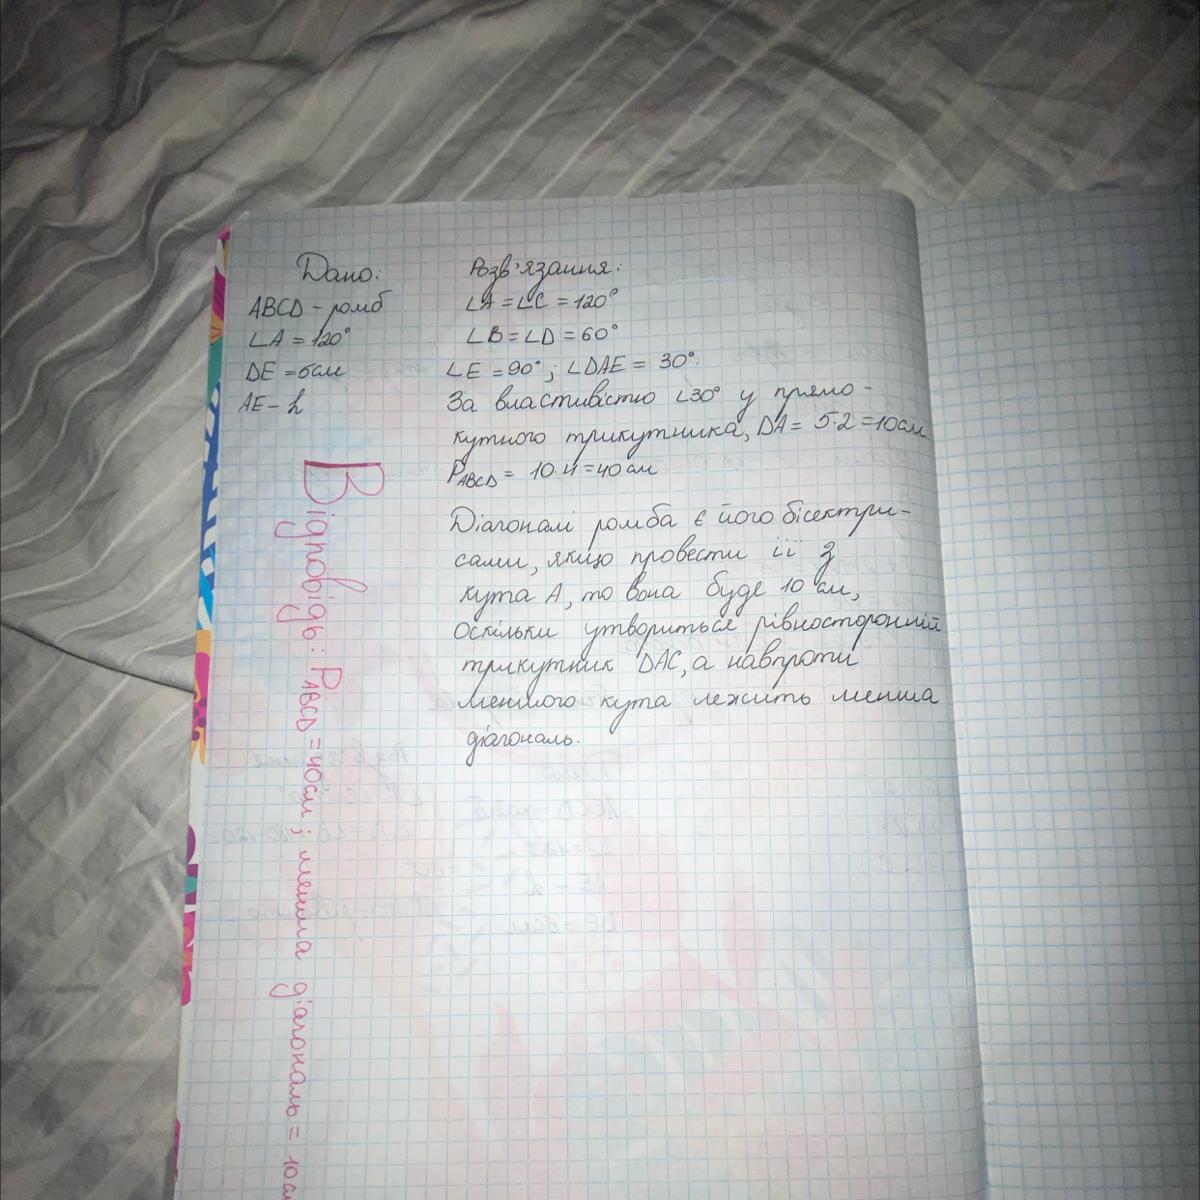 Дано:
ABCD - ромб
∠A = 120°
DE = 5см
AE - h
Розв'язання:
∠A = ∠C = 120°
∠B = ∠D = 60°
∠E = 90°; ∠DAE = 30°.
За властивістю ∠30° у прямо-
кутного трикутника, DA = 5·2 = 10см
PABCD = 10·4 = 40 см
Діагоналі ромба є його бісектри-
сами, якщо провести її з
кута A, то вона буде 10 см,
оскільки утвориться рівносторонній
трикутник DAC, а навпроти
меншого кута лежить менша
діагональ.
Відповідь: PABCD = 40см; менша діагональ = 10см